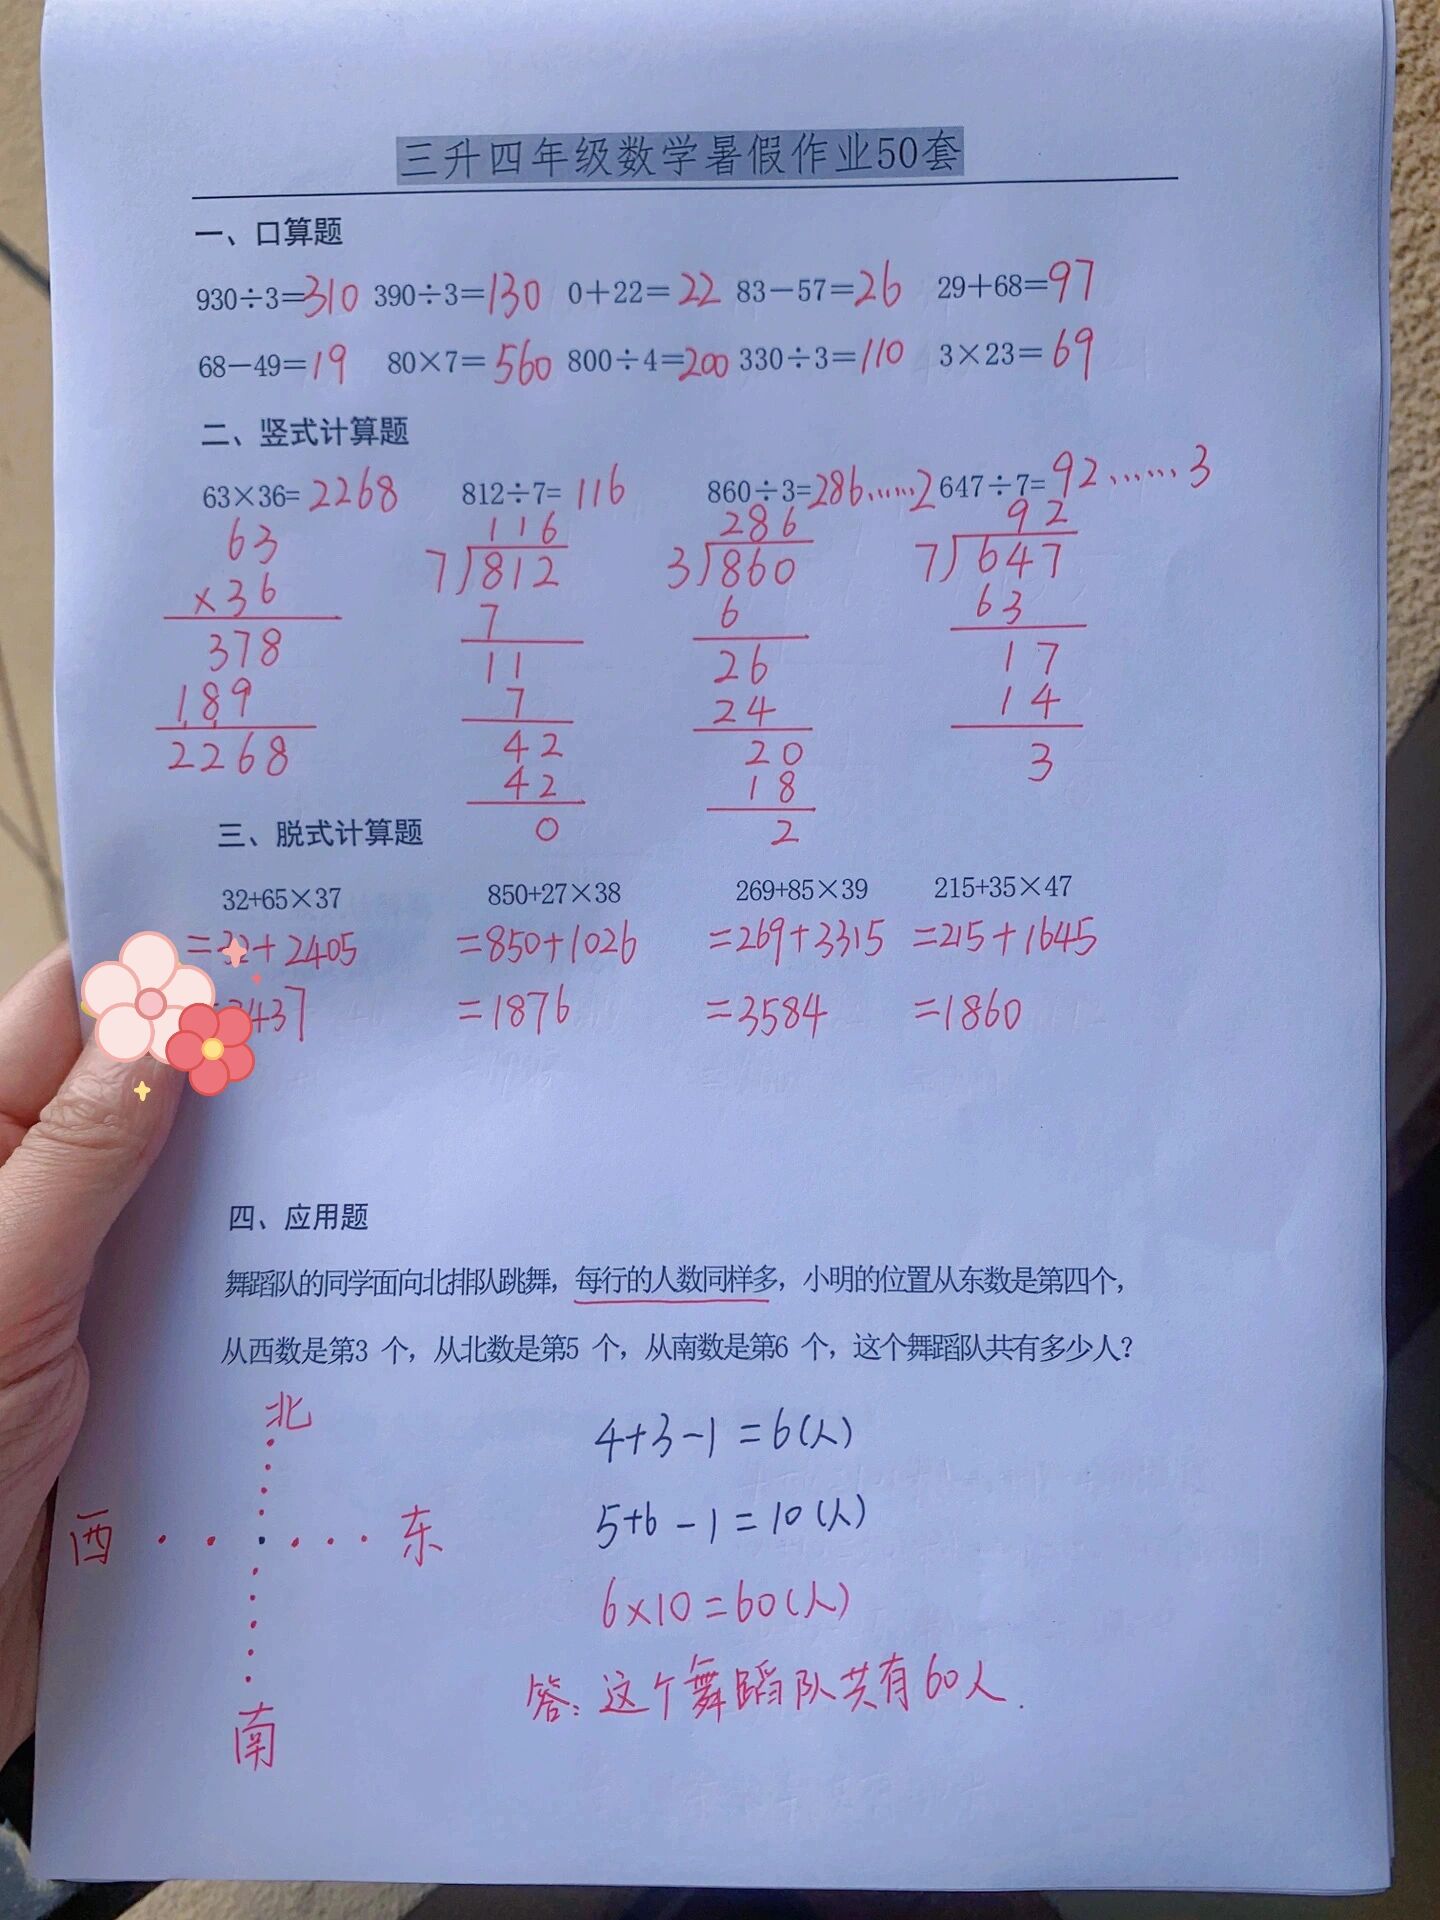 三升四年级数学暑假作业50套
一、口算题
930÷3=310 390÷3=130 0+22=22 83-57=26 29+68=97
68-49=19 80×7=560 800÷4=200 330÷3=110 3×23=69
二、竖式计算题
63×36=2268 812÷7=116 860÷3=286……2 647÷7=92……3
63
×36
378
189
2268
116
7)812
7
11
7
42
42
0
286
3)860
6
26
24
20
18
2
92
7)647
63
17
14
3
三、脱式计算题
32+65×37 850+27×38 269+85×39 215+35×47
=32+2405 =850+1026 =269+3315 =215+1645
437 =1876 =3584 =1860
四、应用题
舞蹈队的同学面向北排队跳舞，每行的人数同样多，小明的位置从东数是第四个，
从西数是第3 个，从北数是第5 个，从南数是第6 个，这个舞蹈队共有多少人？
北
西 东
南
4+3-1=6(人)
5+6-1=10(人)
6×10=60(人)
答：这个舞蹈队共有60人.